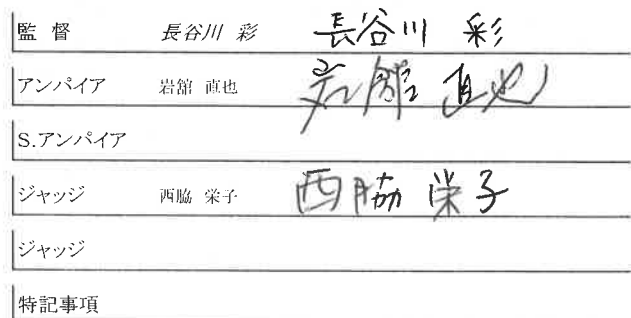 監 督 長谷川 彩 長谷川 彩
アンパイア 岩舘 直也 岩舘 直也
S.アンパイア
ジャッジ 西脇 栄子 西脇 栄子
ジャッジ
特記事項